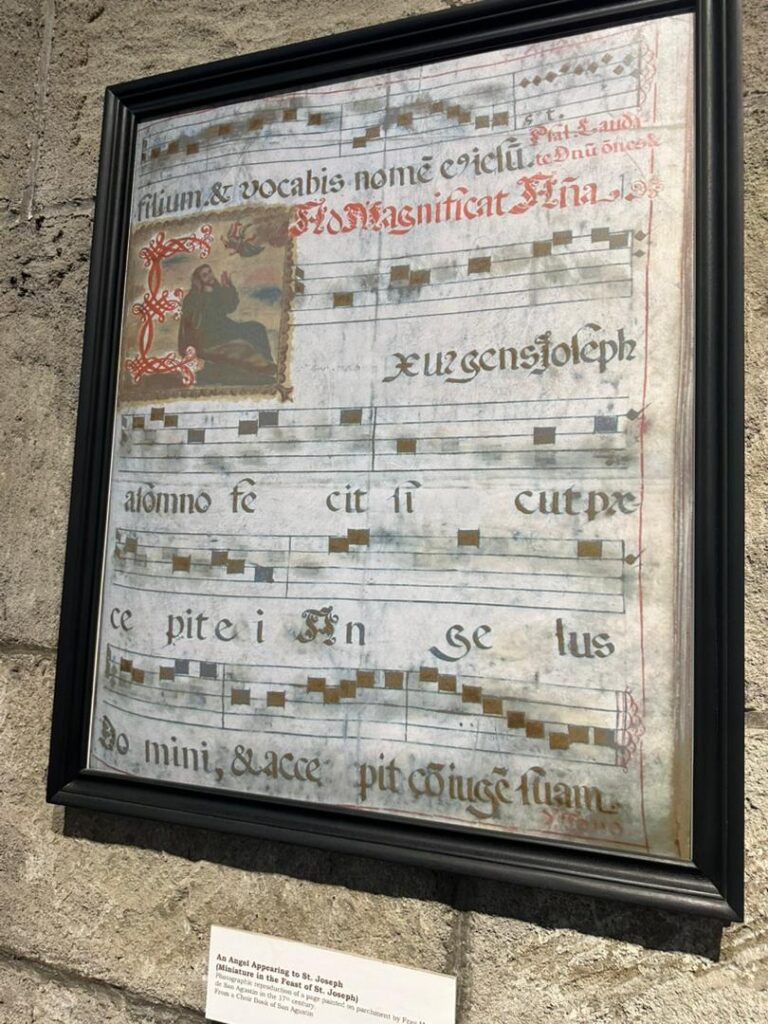 filium. & vocabis nomē eiclū.
Psal. Lauda
te Dnū ōnes &
Ad Magnificat Aña
E
xurgens Joseph
a sōmno fe cit si cut præ
ce pit e i An ge lus
Do mini, & acce pit cōiugē suam.
Tono
An Angel Appearing to St. Joseph
(Miniature in the Feast of St. Joseph)
Photographic reproduction of a page painted on parchment by Fray
de San Agustin in the 17th century.
From a Choir Book of San Agustin